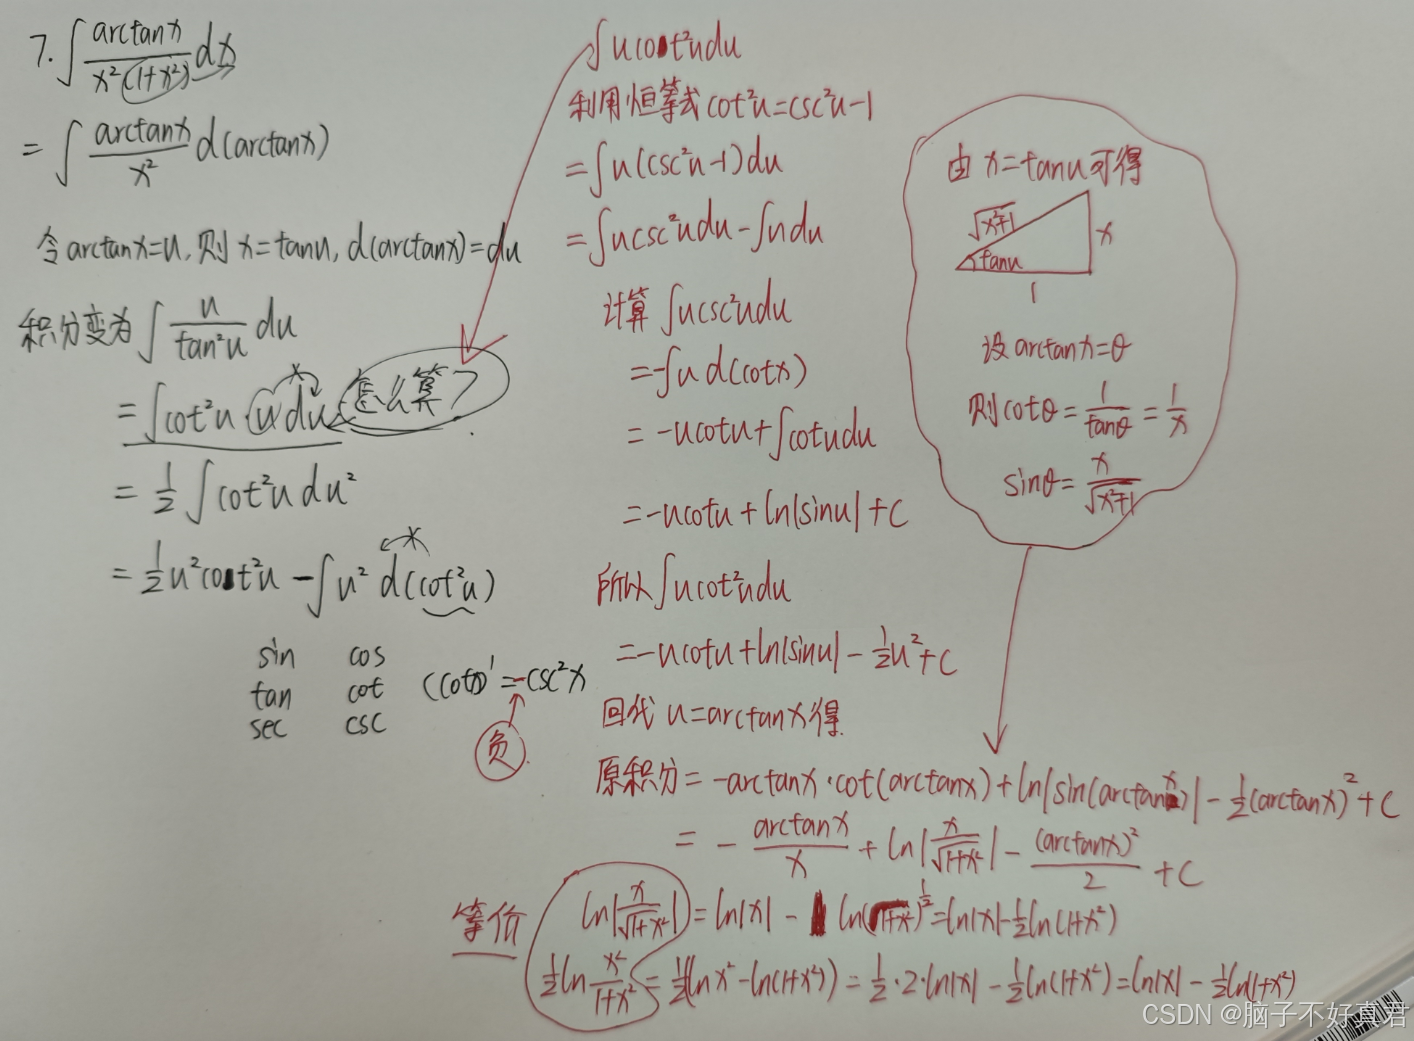 7. ∫ arctanx / x²(1+x²) dx
= ∫ arctanx / x² d(arctanx)
令 arctanx=u, 则 x=tanu, d(arctanx)=du
积分变为 ∫ u / tan²u du
= ∫cot²u · u du 怎么算?
= 1/2 ∫cot²u du²
= 1/2 u²cot²u - ∫u² d(cot²u)
sin cos
tan cot (cotx)' = -csc²x
sec csc
负
∫ucot²udu
利用恒等式 cot²u=csc²u-1
= ∫u(csc²u-1)du
= ∫ucsc²udu - ∫udu
计算 ∫ucsc²udu
= -∫u d(cotx)
= -ucotu + ∫cotudu
= -ucotu + ln|sinu| + C
所以 ∫ucot²udu
= -ucotu + ln|sinu| - 1/2u² + C
回代 u=arctanx得
原积分 = -arctanx·cot(arctanx) + ln|sin(arctanx)| - 1/2(arctanx)² + C
= - arctanx / x + ln|x/√1+x²| - (arctanx)² / 2 + C
由 x=tanu可得
√x²+1
x
tanu
1
设 arctanx=θ
则 cotθ = 1/tanθ = 1/x
sinθ = x/√x²+1
等价
ln|x/√1+x²| = ln|x| - ln(1+x²)^1/2 = ln|x| - 1/2ln(1+x²)
1/2 ln x²/1+x² = 1/2(lnx² - ln(1+x²)) = 1/2·2·ln|x| - 1/2ln(1+x²) = ln|x| - 1/2ln(1+x²)
CSDN @脑子不好真君